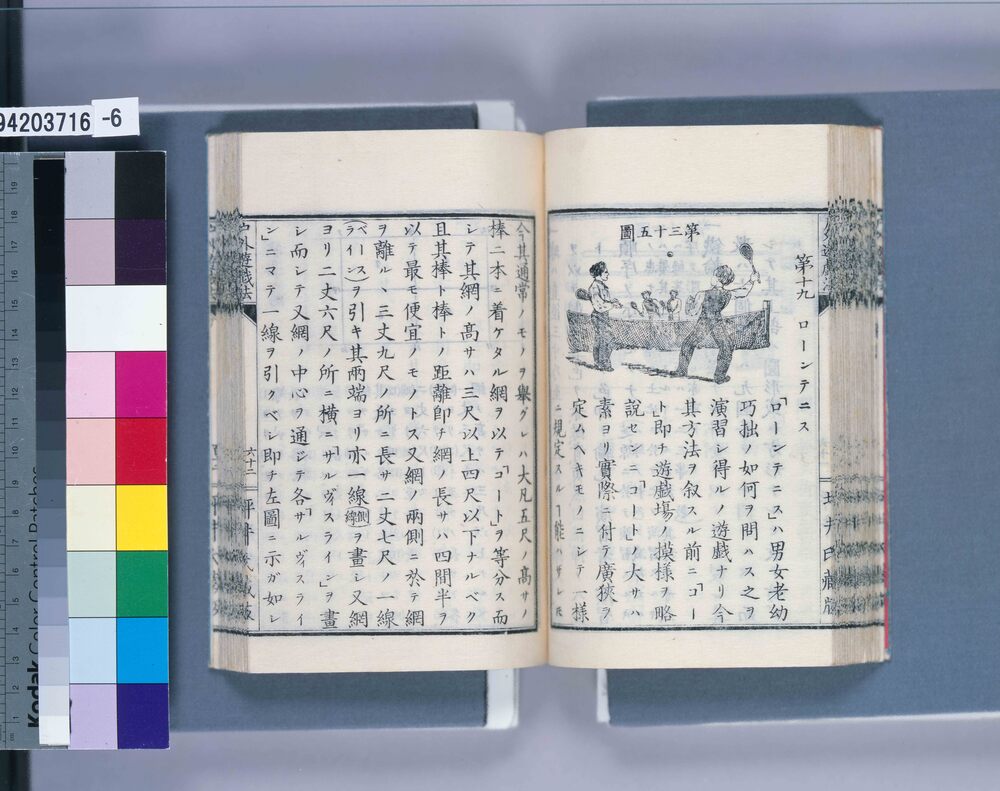 94203716
-6
第十九　ローンテニス
第三十五圖
「ローンテニス」ハ男女老幼
巧拙ノ如何ヲ問ハス之ヲ
演習シ得ルノ遊戲ナリ今
其方法ヲ叙スル前ニ「コー
ト」即チ遊戲塲ノ摸樣ヲ略
說センニ「コート」ノ大サハ
素ヨリ實際ニ付テ廣狹ヲ
定ムヘキモノニシテ一樣
ニ規定スルヿ能ハザレ𪜈
今其通常ノモノヲ舉グレハ大凡五尺ノ高サノ
棒二本ニ着ケタル網ヲ以テ「コート」ヲ等分ス而
シテ其網ノ高サハ三尺以上四尺以下ナルベク
且其棒ト棒トノ距離即チ網ノ長サハ四間半ヲ
以テ最モ便宜ノモノトス又網ノ兩側ニ於テ網
ヲ離ルヽ三丈九尺ノ所ニ長サ二丈七尺ノ一線
(ベースライン)ヲ引キ其兩端ヨリ亦一線(側線)ヲ畫シ又網
ヨリ二丈六尺ノ所ニ橫ニ「サルヴ井スライン」ヲ畫
シ而シテ又網ノ中心ヲ通シテ各「サルヴ井スライ
ン」ニマテ一線ヲ引クベシ即チ左圖ニ示ガ如シ
戶外遊戲法
六十二
坪井氏藏版
Kodak Color Control Patches